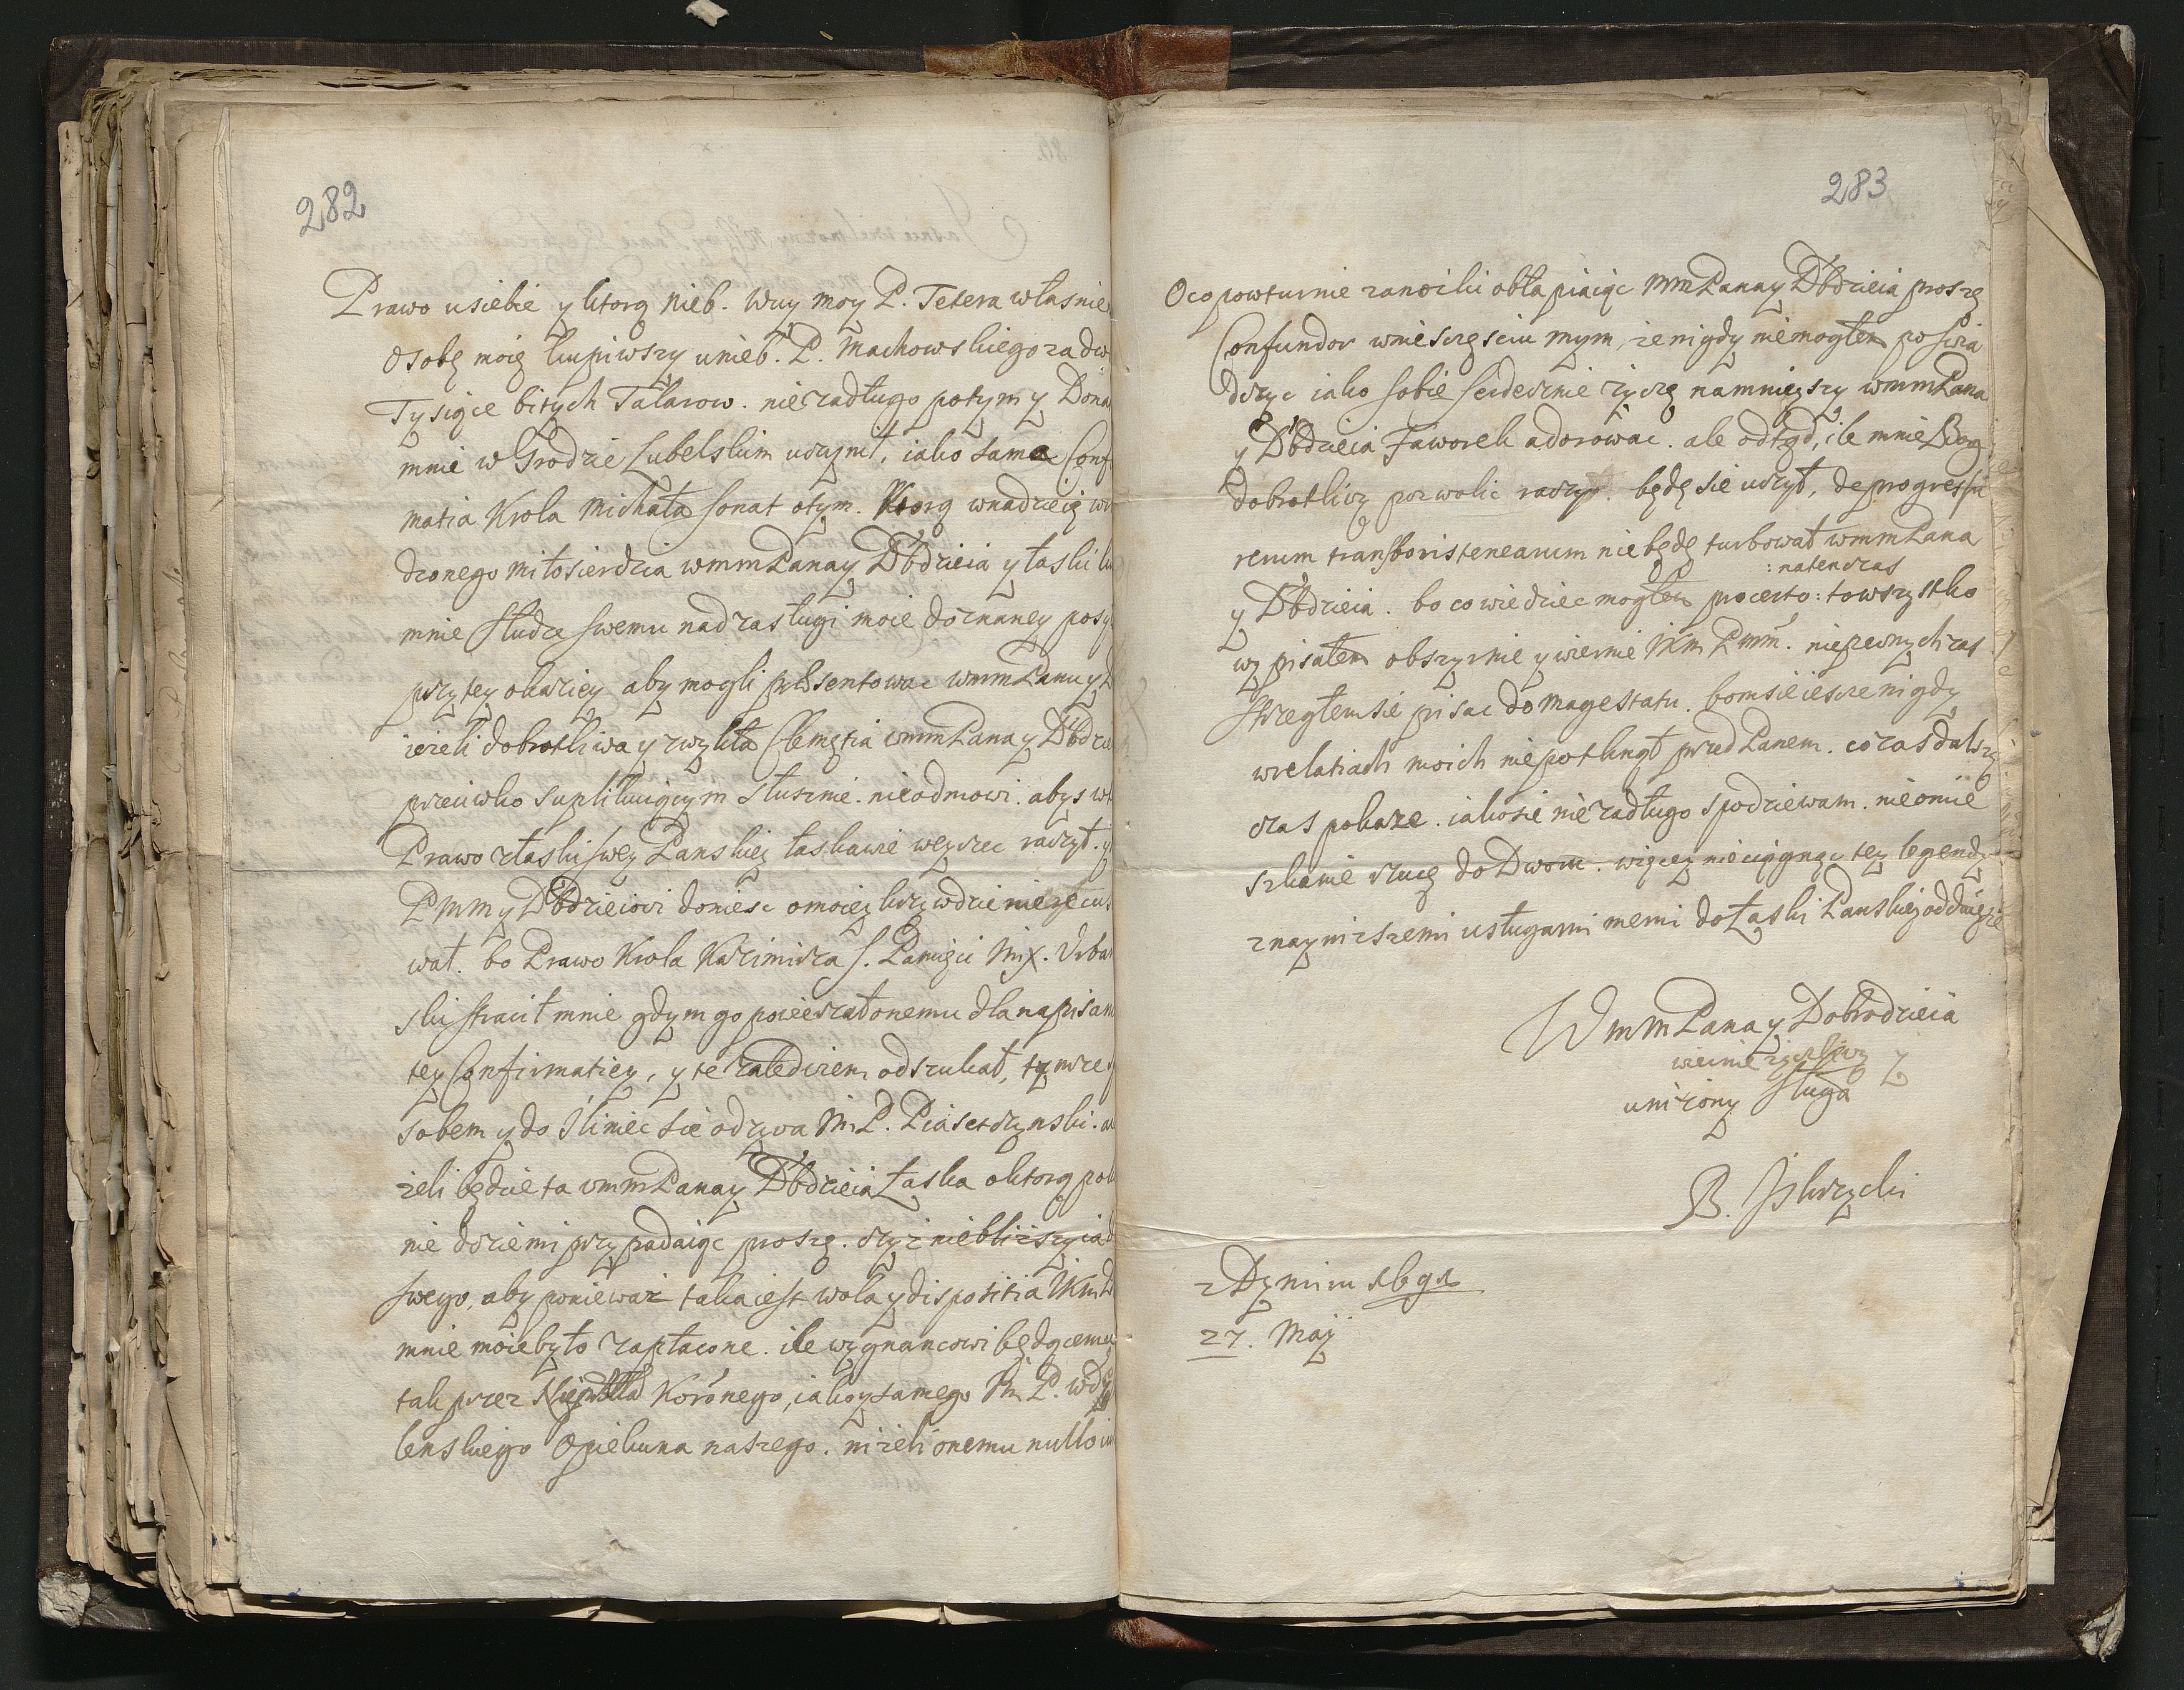 282
Prawo usiebie y ktorą nieb. Wuy moy P. Tetera własnie
osobę moię kupiwszy unieb. P. Machowskiego za dw
Tysiące bitych Talarow. niezadługo potym y Dona
mnie w Grodzie Lubelskim uczynił, iako sama Conf
matia Krola Michała sonat otym. Ktorą wnadzieię w
dzonego miłosierdzia wmmPana y Dbdzieia y łaski
mnie słudze swemu nad zasługi moie doznaney posy
przy tey okaziey aby mogli præsentowac wmmPanu y
ieżeli dobrotliwa y zwykła Clemętia wmmPana y Dbdzie
przeciwko suplikuiącym słusznie. nieodmowi. abys w
Prawo złaski swey Panskiey łaskawie weyzrec raczył.
PMM y Dbdzieiowi doniesc omoiey krzywdzie
wał. bo Prawo Krola Kazimirza s. Pamięci MX. Urba
ski stracił mnie gdym go poieeszał onemu dla napisan
tey Confirmatiey, y te zaledwiem odszukał, tym
sobem y do Śliniec sie odzywa MP. Piaseczynski.
żeli będzie ta wmmPana y Dbdzieia Łaska oktorą pok
nie dziemi przypadaiąc proszę. czyż niebliższy ia
swego, aby poniewaz taka iest wola y dispositia JKM
mnie moie było zapłacone. ile wygnancowi będącemu
tak przez Koronego, iako y samego JM P. wdy
lenskiego Opiekuna naszego. niżeli onemu nullo iu
283
Oco powturnie za nożki obłapiaiąc MMPana y Dbdzieia proszę
Confundor wniesczęsciu mym, że nigdy niemogłem poswia
dczyc iako sobie serdecznie życzę namnieyszy wmmPana
y Dbdzieia Faworek adorowac. ale odtąd, ile mnie Bog
dobrotliwy pozwolic raczy. będę sie uczył, de progressu
rerum transboristenearum niebędę turbował wmmPana
:natenczas
y Dbdzieia. bo co wiedziec mogłem procerto: towszystko
wypisałem obszyrnie y wiernie JKM PMM. niepewnych zas
strzegłem sie pisac do Magestatu. bom sie iescze nigdy
wrelatiach moich niepotknął przed Panem. co zas dalszy
czas pokaze. iako sie niezadługo spodziewam. nieomie
szkanie rzucę do Dworu. więcey nieciągnąc tey legendy
znayniższemi usługami memi do Łaski Panskiey oddaię sie
WmmPana y Dobrodzieia
wiernie życzliwy y
uniżony sługa
B. Jskrzycki
z Dymiru
27. Maÿ